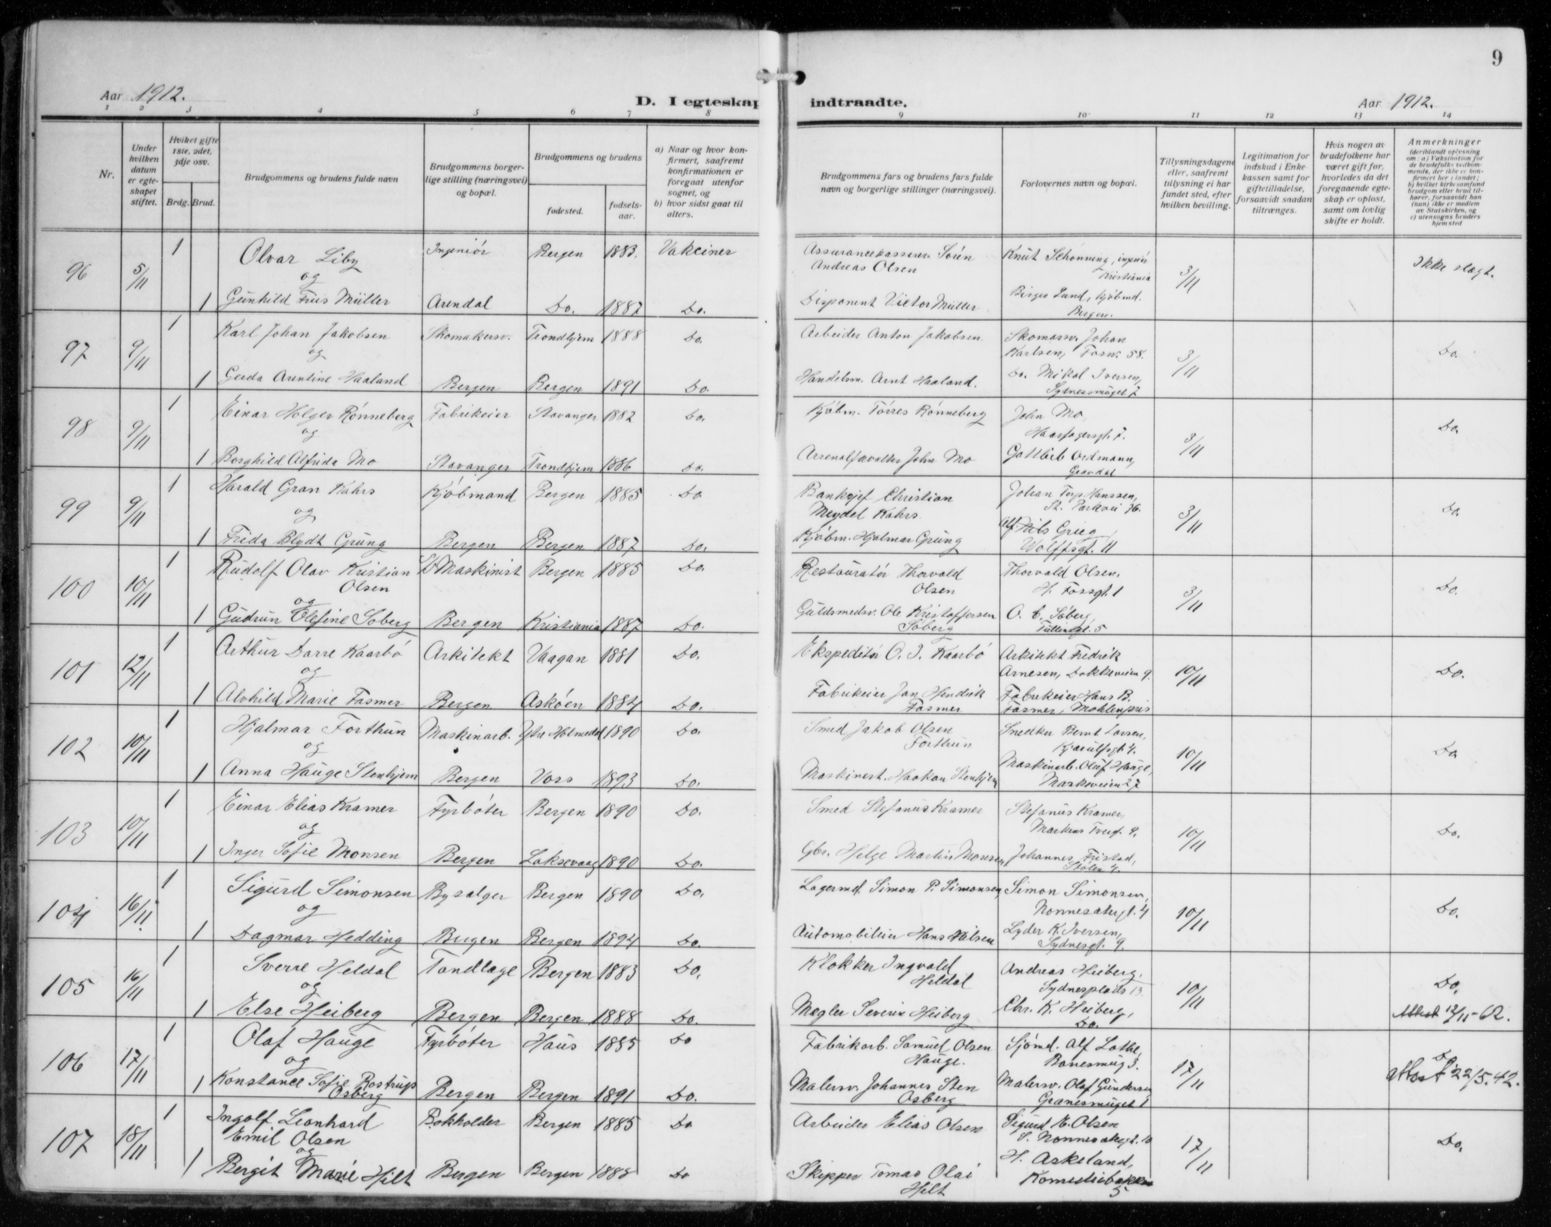 9
Aar 1912.
D. I egteskap indtraadte.
Aar 1912.
1 2 3 4 5 6 7 8 9 10 11 12 13 14
Nr.
Under hvilken datum er egteskapet stiftet.
Hvilket gifte 1ste, 2det, 3dje osv.
Brdg. Brud.
Brudgommens og brudens fulde navn
Brudgommens borgerlige stilling (næringsvei) og bopæl.
Brudgommens og brudens
fødested.
fødselsaar.
a) Naar og hvor konfirmert, saafremt konfirmationen er foregaat utenfor sognet, og
b) hvor sidst gaat til alters.
Brudgommens fars og brudens fars fulde navn og borgerlige stillinger (næringsvei).
Forlovernes navn og bopæl.
Tillysningsdagene eller, saafremt tillysning ei har fundet sted, efter hvilken bevilling.
Legitimation for indskud i Enkekassen samt for giftetilladelse, forsaavidt saadan tiltrænges.
Hvis nogen av brudefolkene har været gift før, hvorledes da det foregaaende egteskap er opløst, samt om lovlig skifte er holdt.
Anmerkninger
96 5/11 1 Olvar Liby Ingeniør Bergen 1883. Vakciner Assurancekasserer Søren Andreas Olsen Knut Schonning, Kristiania 3/11 Ikke slegt.
og
1 Gunhild Friis Müller Arendal Do. 1887 Do. Disponent Victor Müller Birger Lund, kjøbmd. Bergen.
97 9/11 1 Karl Johan Jakobsen Skomakersv. Trondhjem 1888 Do. Arbeider Anton Jakobsen Skomaskr. Johan Karlsen, 58. 3/11 Do.
og
1 Gerda Arentine Haaland Bergen Bergen 1891 Do. Handelsm. Arnt Haaland. Do. Mikal Iversen, Sydnesmuget 7
98 9/11 1 Einar Holger Rønneberg Fabrikeier Stavanger 1882 Do. Kjøbm. Tørres Rønneberg John Mo, Haarfagersgt. 7. 3/11 Do.
og
1 Borghild Alfrida Mo Stavanger Trondhjem 1886 Do. Arsenalforvalter John Mo Gottlieb Oidmann, Gravdal
99 9/11 1 Harald Gran Kahrs Kjøbmand Bergen 1885 Do Bankchef Christian Meydel Kahrs Johan Hanssen, St. Parkvei 3/11 Do.
og
1 Frida Blydt Grung Bergen Bergen 1887 Do. Kjøbm. Hjalmar Grung Nils Grieg, Wolffsgt. 11
100 10/11 1 Rudolf Olav Kristian Olsen Maskinist Bergen 1885 Do Restauratør Thorvald Olsen Thorvald Olsen, H. Fossgt. 1 3/11 Do.
og
1 Gudrun Olefine Soberg Bergen Kristiania 1887 Do. Guldsmedsv. Ole Kristoffersen Soberg O. C. Soberg,
101 12/11 1 Arthur Darre Kaarbø Arkitekt Vaagan 1881 Do. Ekspeditør O. J. Kaarbø Arkitekt Fredrik Arnesen, Dokkeveien 9. 10/11 Do.
og
1 Alvhild Marie Fasmer Bergen Askøen 1884 Do. Fabrikeier Jan Hendrik Fasmer Fabrikeier Hans B. Fasmer, Møhlenpris
102 10/11 1 Hjalmar Forthun Maskinarb. 1890 Do. Smed Jakob Olsen Forthun Snedker Bernt Larsen, 10/11 Do
og
1 Anna Hauge Stenhjem Bergen Voss 1893 Do. Maskinist. Haakon Stenhjem Maskinarb. Oluf Hauge, Markeveien 27
103 10/11 1 Einar Elias Kramer Fyrbøter Bergen 1890 Do. Smed Stefanus Kramer Stefanus Kramer, 10/11 Do.
og
1 Inger Sofie Monsen Bergen Laksevaag 1890 Do. Gbr. Helge Martin Monsen Johannes Fristad,
104 16/11 1 Sigurd Simonsen Bysælger Bergen 1890 Do. Lagermd. Simon P. Simonsen, Simon Simonsen, Nonnesætergt. 4 10/11 Do.
og
1 Dagmar Hedding Bergen Bergen 1894 Do. Automobileier Hans Nilsen Lyder K. Iversen, Sydnesgt. 9.
105 16/11 1 Sverre Heldal Tandlæge Bergen 1883 Do. Klokker Ingvald Heldal Andreas Heiberg, Sydnesplads 13. 10/11 Do.
og
1 Else Heiberg Bergen Bergen 1888 Do. Megler Severin Heiberg Chr. K. Heiberg, Do. Attest 12/11-62.
106 17/11 1 Olaf Hauge Fyrbøter Haus 1885 Do Fabrikarb. Samuel Olsen Hauge. Sjømd. Alf Lothe, 3. 17/11 Do
og
1 Konstance Sofie Rostrup Osberg Bergen Bergen 1891 Do. Malersv. Johannes Sten Osberg Malersv. Olaf Gundersen Granesmuget 1 attest 22/5.42.
107 18/11 1 Ingolf Leonhard Emil Olsen Bokholder Bergen 1885 Do Arbeider Elias Olsen Sigurd E. Olsen 17/11 Do.
og
1 Bergit Marie Hilt Bergen Bergen 1885 Do Skipper Tomas Olai Hilt H. Askeland, Komediebakken 5